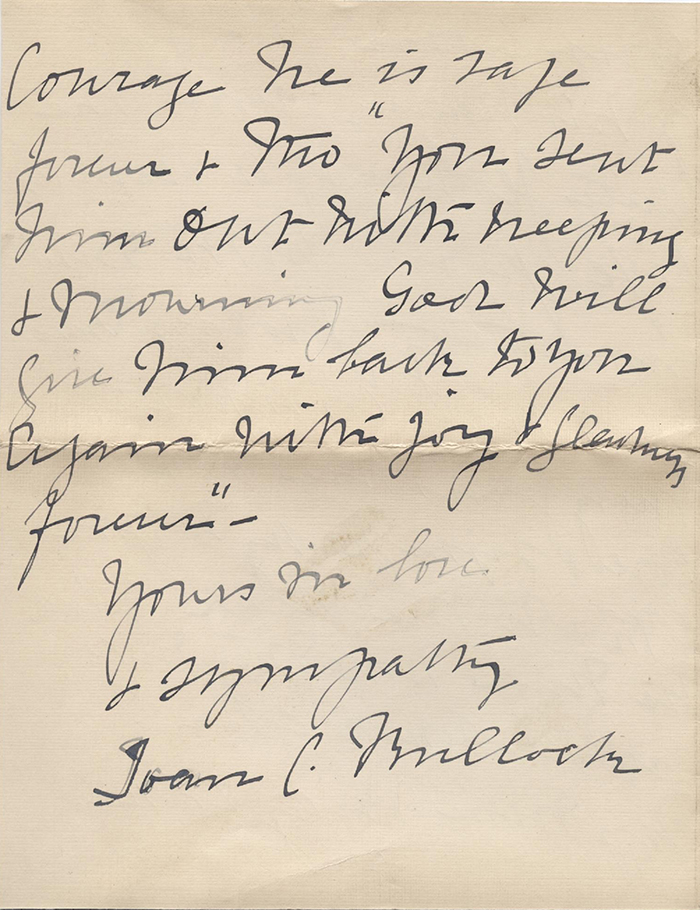 Courage He is safe
forever & tho "You sent
him out with weeping
& mourning God will
give him back to you
again with joy & gladness
forever" –
Yours in love
& sympathy
Joan C. Bullock